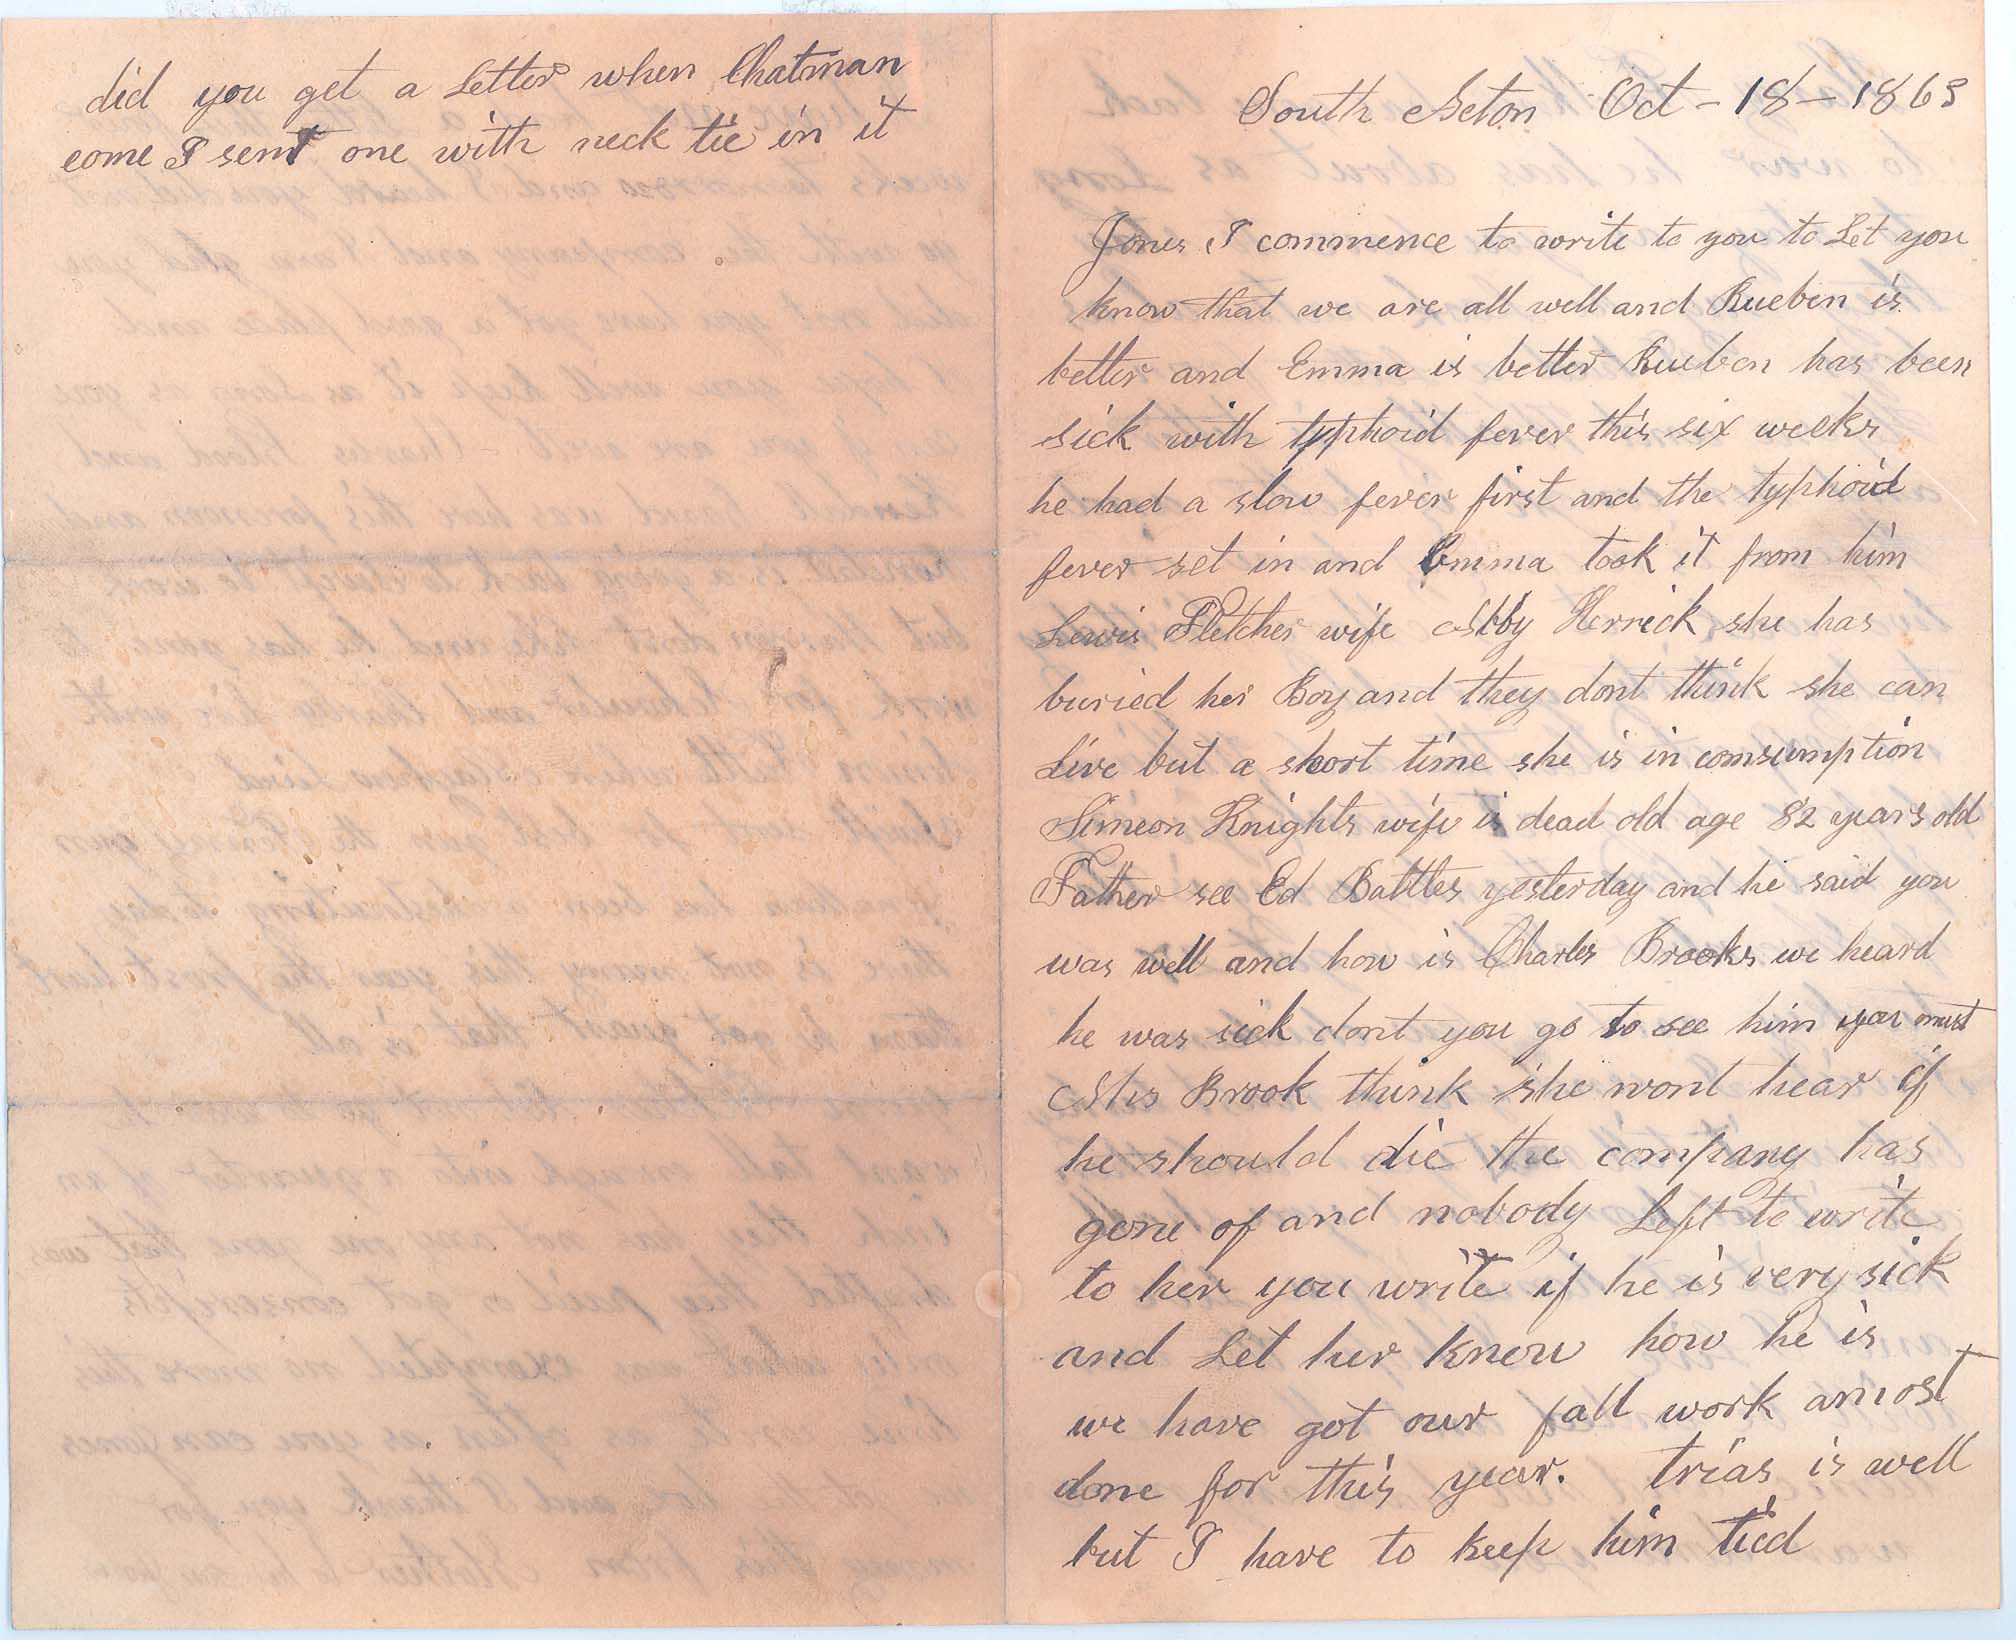 did you get a Letter when Chatman
come I sent one with neck tie in it
South Acton Oct - 18 - 1863
Jones I commence to write to you to Let you
know that we are all well and Rueben is
better and Emma is better Rueben has been
sick with typhoid fever this six weeks
he had a slow fever first and the typhoid
fever set in and Emma took it from him
Lewis Fletcher wife Abby Herrick she has
buried her Boy and they dont think she can
Live but a short time she is in comsumption
Simeon Knights wife is dead old age 82 years old
Father see Ed Battles yesterday and he said you
was well and how is Charles Brooks we heard
he was sick dont you go to see him you must
Mrs Brook think she wont hear if
he should die the company has
gone of and nobody Left to write
to her you write if he is very sick
and Let her know how he is
we have got our fall work amost
done for this year. trias is well
but I have to keep him tied